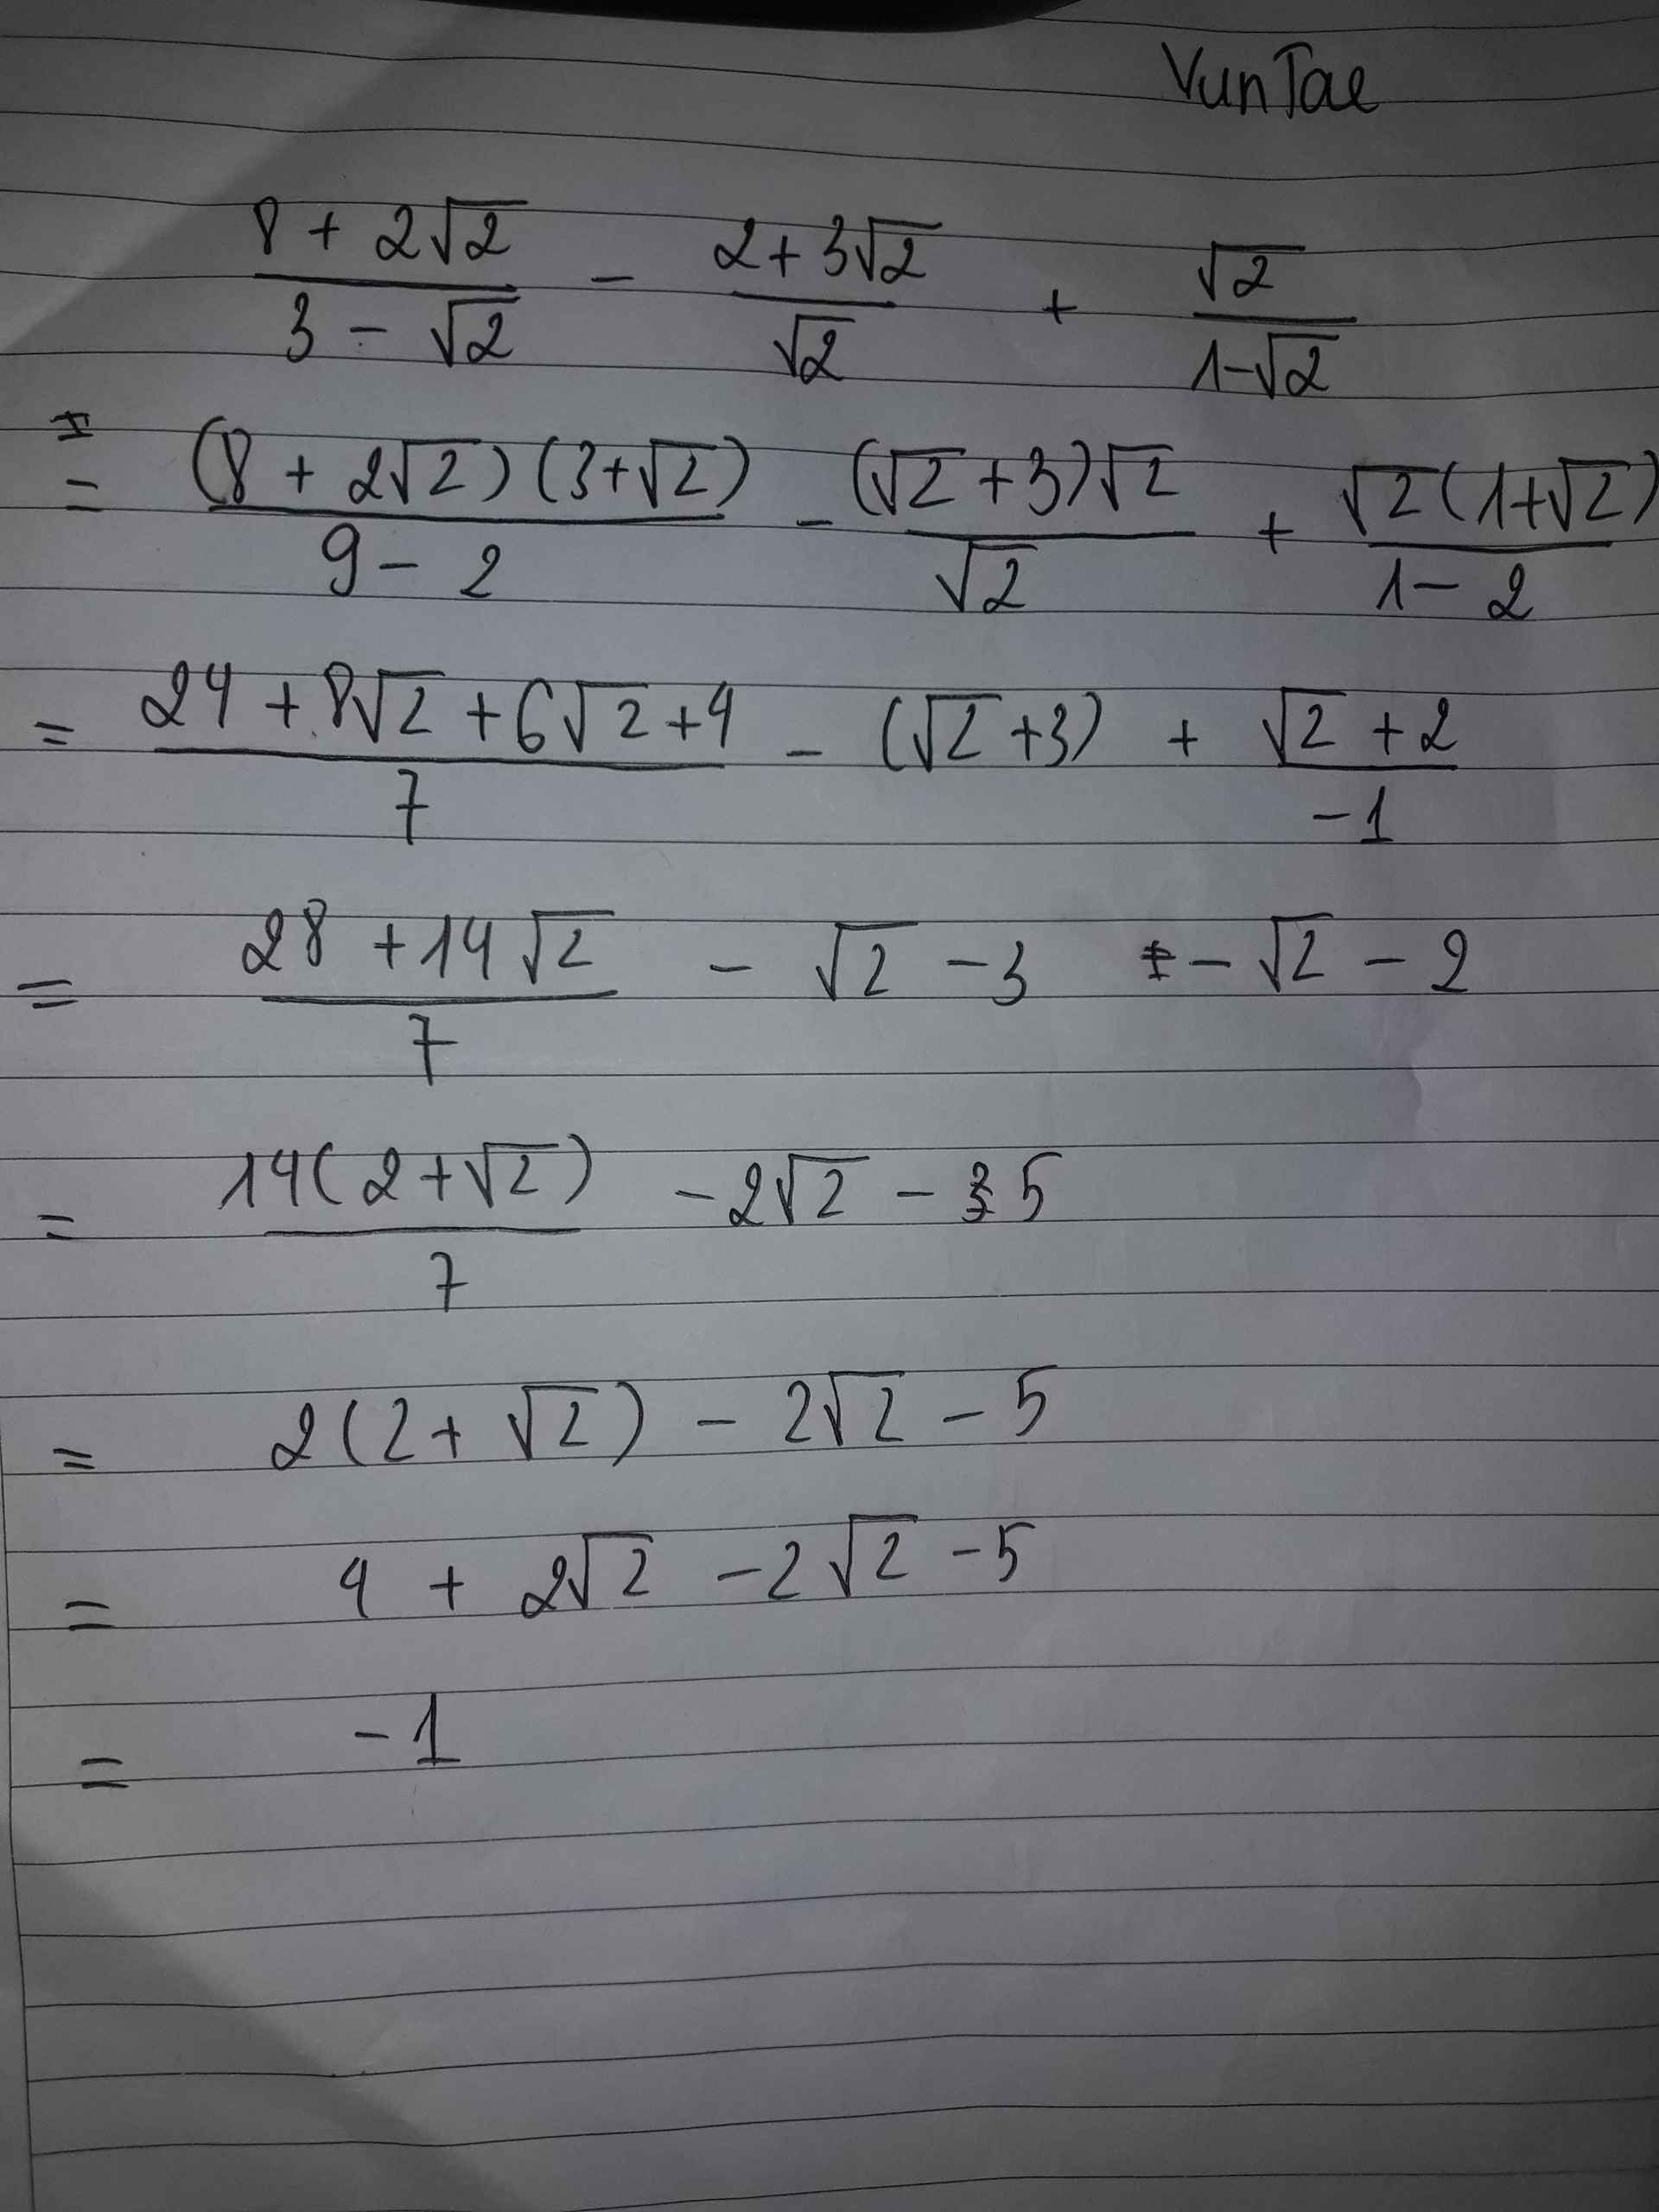 VunTae
(8 + 2√2)/(3 - √2) - (2 + 3√2)/√2 + √2/(1-√2)
= ((8 + 2√2)(3+√2))/(9 - 2) - ((√2 + 3)√2)/√2 + (√2(1+√2))/(1 - 2)
= (24 + 8√2 + 6√2 + 4)/7 - (√2 + 3) + (√2 + 2)/(-1)
= (28 + 14√2)/7 - √2 - 3 - √2 - 2
= (14(2 + √2))/7 - 2√2 - 5
= 2(2 + √2) - 2√2 - 5
= 4 + 2√2 - 2√2 - 5
= -1